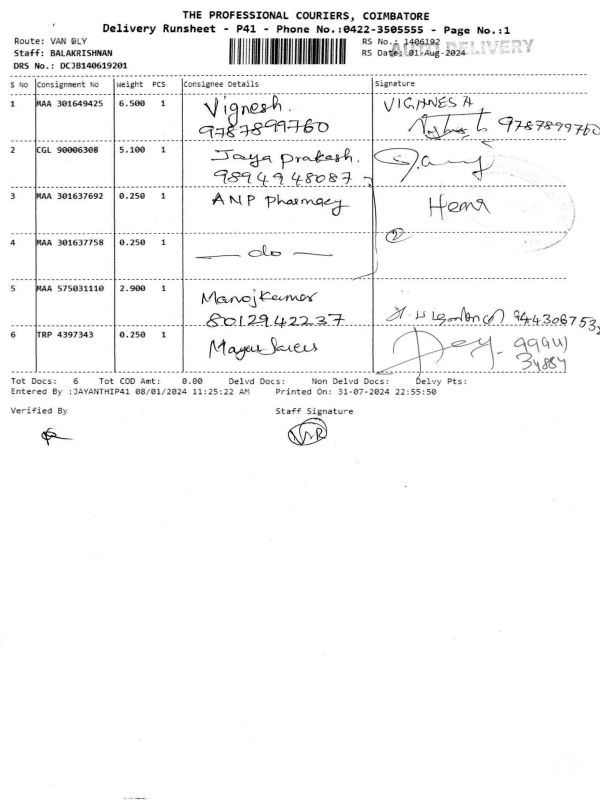 THE PROFESSIONAL COURIERS, COIMBATORE
Delivery Runsheet - P41 - Phone No.:0422-3505555 - Page No.:1
Route: VAN DLY RS No.: 1406192
AUTO DELIVERY
Staff: BALAKRISHNAN RS Date: 01-Aug-2024
DRS No.: DCJB140619201
S No Consignment No Weight PCS Consignee Details Signature
1 MAA 301649425 6.500 1 Vignesh. VIGHNESH
9787899760 9787899760
2 CGL 90006308 5.100 1 Jaya prakash.
9894948087
3 MAA 301637692 0.250 1 ANP pharmacy Hema
4 MAA 301637758 0.250 1 — do — 2
5 MAA 575031110 2.900 1 Manojkumar
8012942237 944306753
6 TRP 4397343 0.250 1 99941
34884
Tot Docs: 6 Tot COD Amt: 0.00 Delvd Docs: Non Delvd Docs: Delvy Pts:
Entered By :JAYANTHIP41 08/01/2024 11:25:22 AM Printed On: 31-07-2024 22:55:50
Verified By Staff Signature